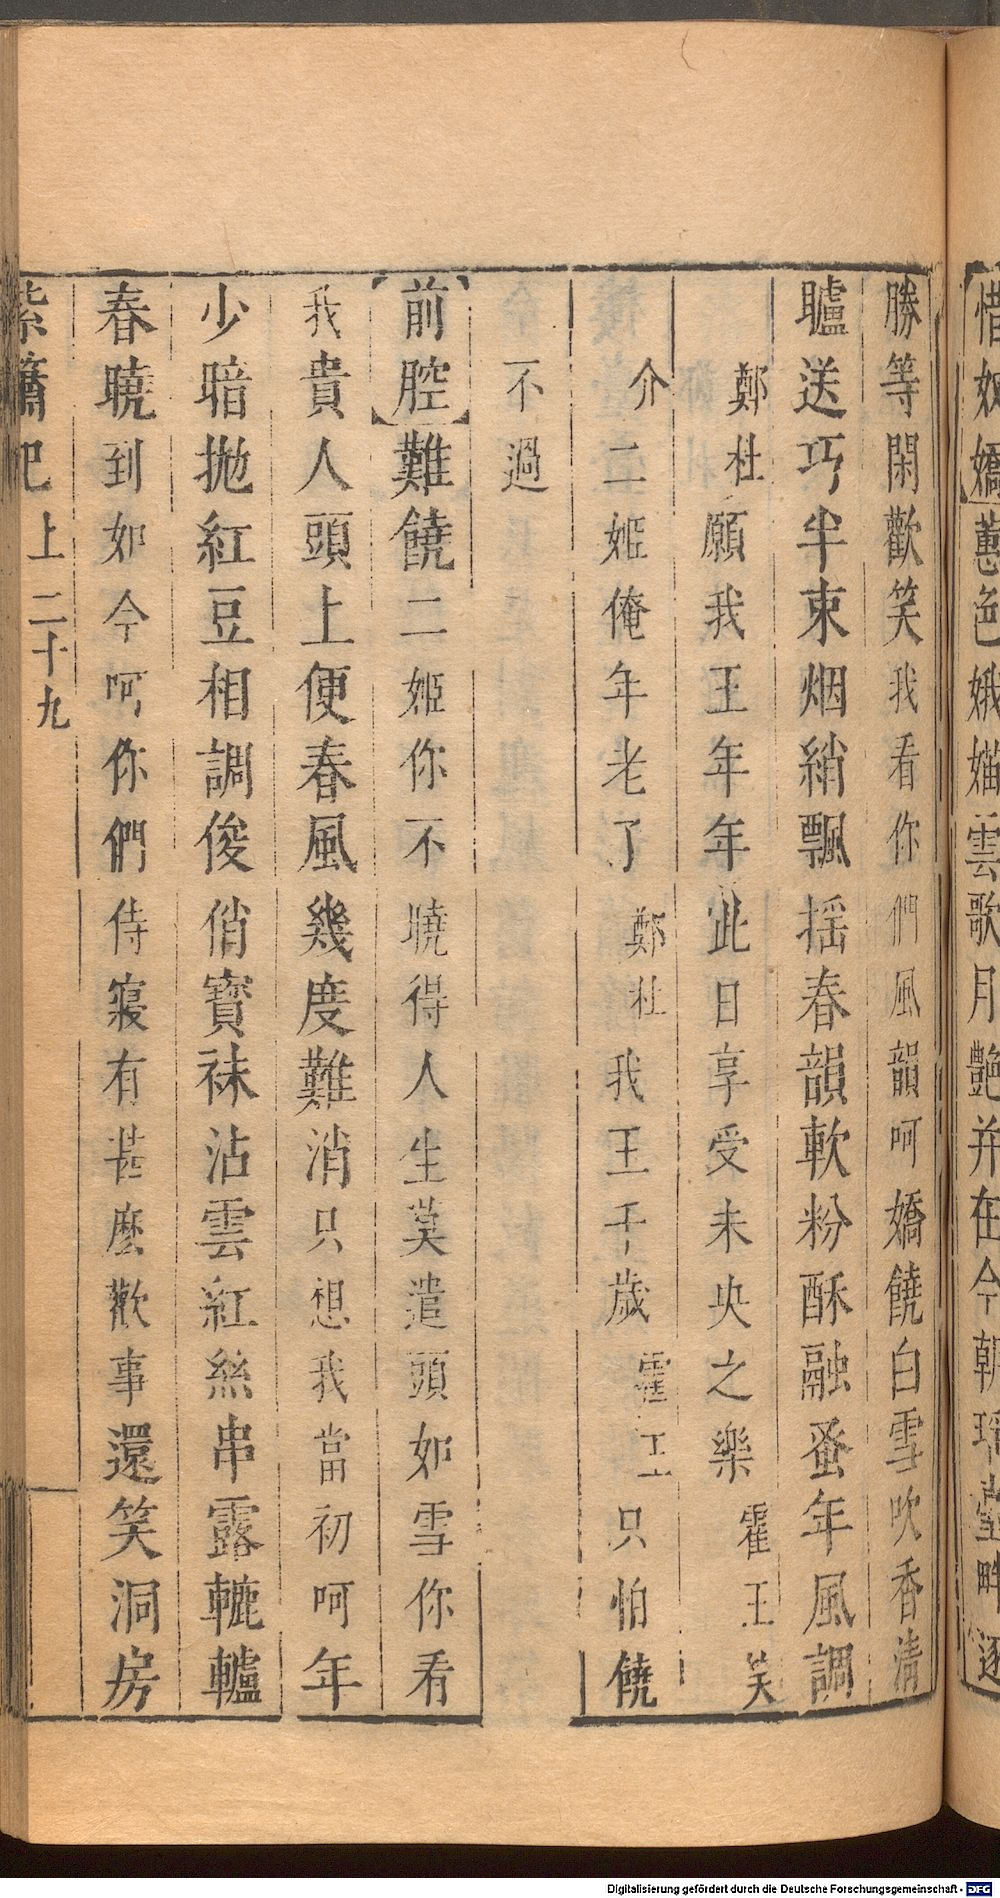 惜奴嬌蕙色娥媌雲歌月艷并在今朝瑤堂畔逐
勝等閑歡笑我看你們風韻呵嬌饒白雪吹香清
矑送巧半束烟綃飄揺春韻軟粉酥融蚤年風調
鄭杜願我王年年此日享受未央之樂霍王笑
介二姬俺年老了鄭杜我王千歲霍王只怕饒
不過
前腔難饒二姬你不曉得人生莫遣頭如雪你看
我貴人頭上便春風幾度難消只想我當初呵年
少暗拋紅豆相調俊俏寶袜沾雲紅絲串露轆轤
春曉到如今呵你們侍寢有甚麼歡事還笑洞房
紫簫記上二十九
Digitalisierung gefördert durch die Deutsche Forschungsgemeinschaft - DFG